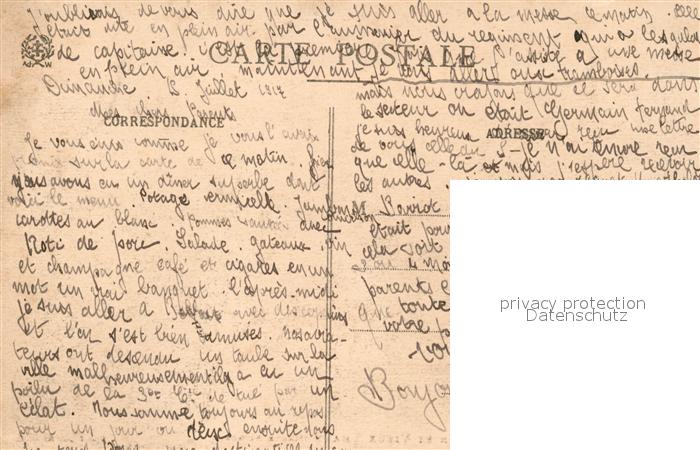 J'oubliais de vous dire que je suis aller a la messe ce matin. Elle
était dite en plein air par l'aumonier du regiment qui a les galons
de capitaine c'est la première fois que j'assite a une messe
en plein air maintenant je vais aller aux framboises.
CARTE POSTALE
Dimanche 15 Juillet 1917
Mes chers Parents
CORRESPONDANCE
Je vous ecris comme je vous l'avais
promis sur la carte de ce matin. Hier
nous avons eu un diner superbe dont
voici le menu. Potage vermicelle. Jambon
carottes au blanc pommes sautées avec
Roti de porc. Salade. gateaux. vin
et champagne café et cigares en un
mot un vrai banquet. l'après-midi
je suis aller a avec des copains
et l'on s'est bien amusés.
ont descendu un taube sur la
ville malheureusement il y a eu un
poilu de la 3e Cie de tué par un
éclat. Nous somme toujours au repos
pour un jour ou deux ensuite nous
mais nous croyons que ce sera dans
le secteur ou était Germain Ferrand
ADRESSE
je suis heureux reçu une lettre
de vous celle du 8 je n'ai encore reçu
que celle-là et mais j'espère recevoir
les autres.
M
était pour
cela soit
3 ou 4 mois
parents e
que toute
votre p
Bonjo
privacy protection
Datenschutz